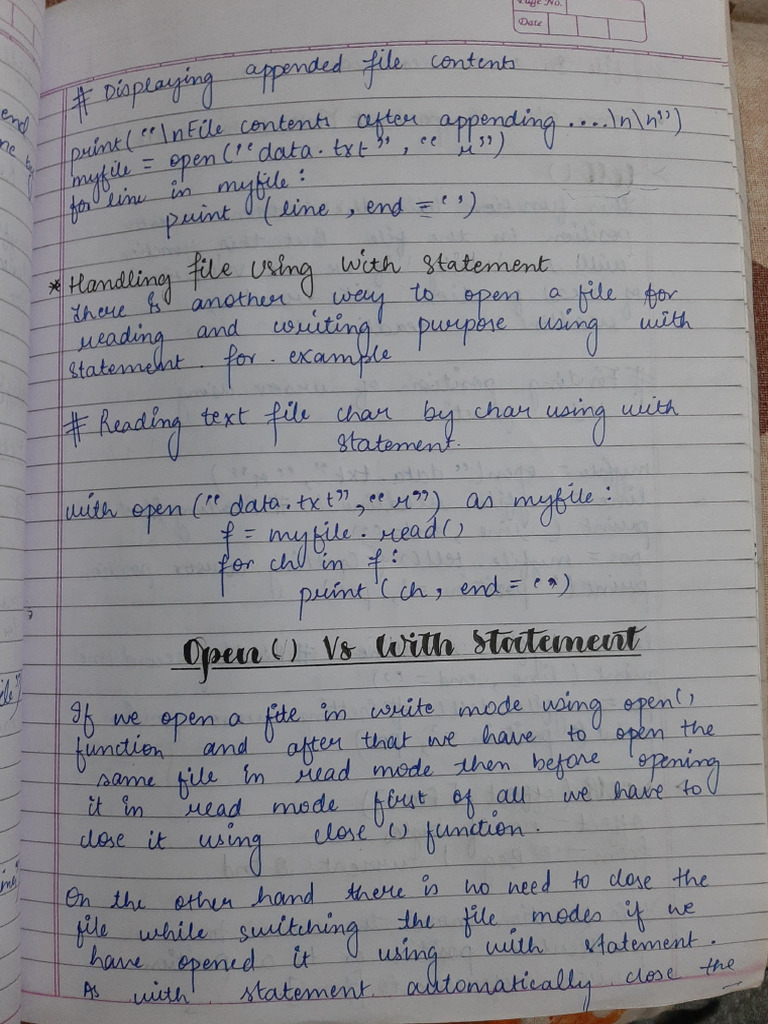 Page No.
Date
# Displaying appended file contents
print("\nFile contents after appending ....\n\n")
myfile = open("data.txt", "r")
for line in myfile:
print (line, end = '')
* Handling file using with statement
There is another way to open a file for
reading and writing purpose using with
statement. for. example
# Reading text file char by char using with
statement.
with open("data.txt", "r") as myfile:
f = myfile.read()
for ch in f:
print (ch, end = '')
Open () Vs With Statement
If we open a file in write mode using open()
function and after that we have to open the
same file in read mode then before opening
it in read mode first of all we have to
close it using close () function.
On the other hand there is no need to close the
file while switching the file modes if we
have opened it using with statement.
As with statement automatically close the